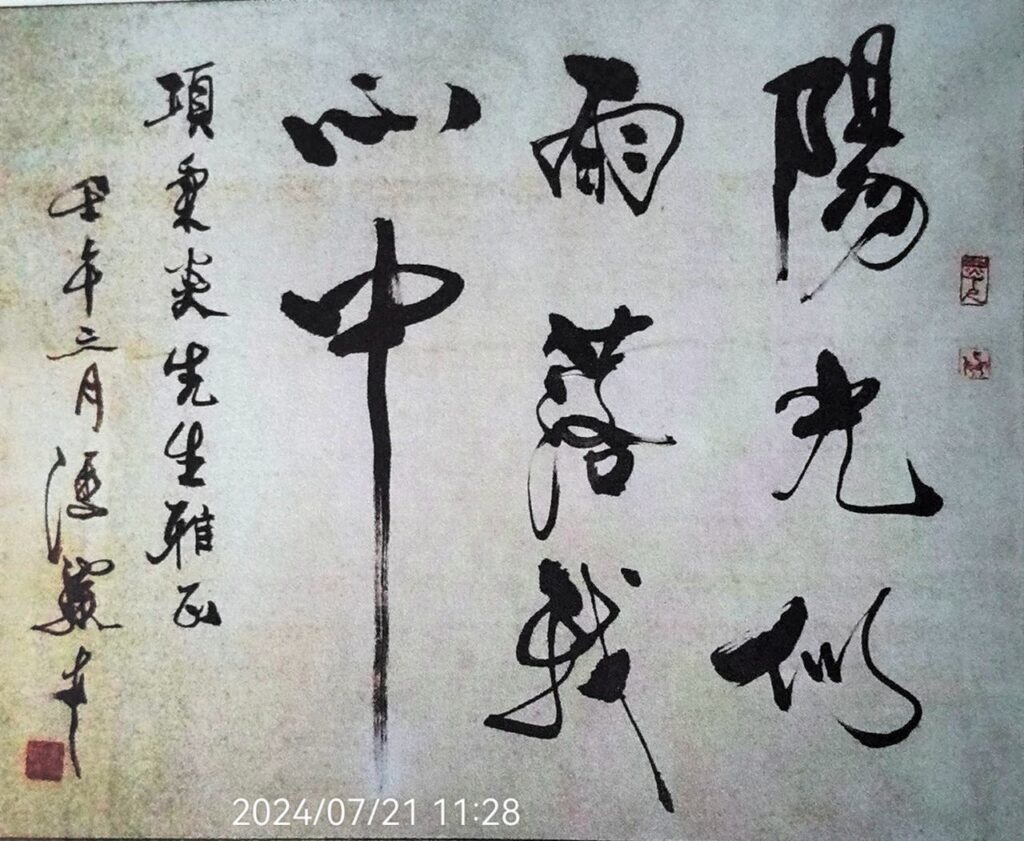 陽光似
雨落我
心中
項秉炎先生雅正
午三月
2024/07/21 11:28